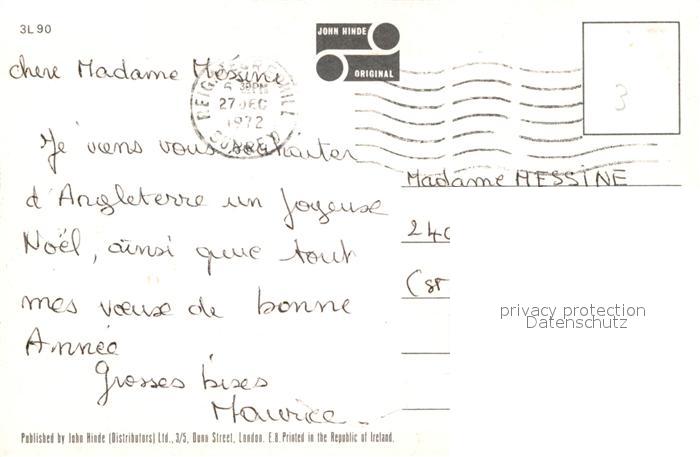 3L90
JOHN HINDE
ORIGINAL
chere Madame Méssine
6 30PM
27 DEC
1972
Je viens vous souhaiter
d'Angleterre un Joyeuse
Noël, ainsi que tout
mes vœuse de bonne
Année
Grosses bises
Maurice.
Madame MESSINE
240
3
privacy protection
Datenschutz
Published by John Hinde (Distributors) Ltd., 3/5, Dunn Street, London. E.8. Printed in the Republic of Ireland.